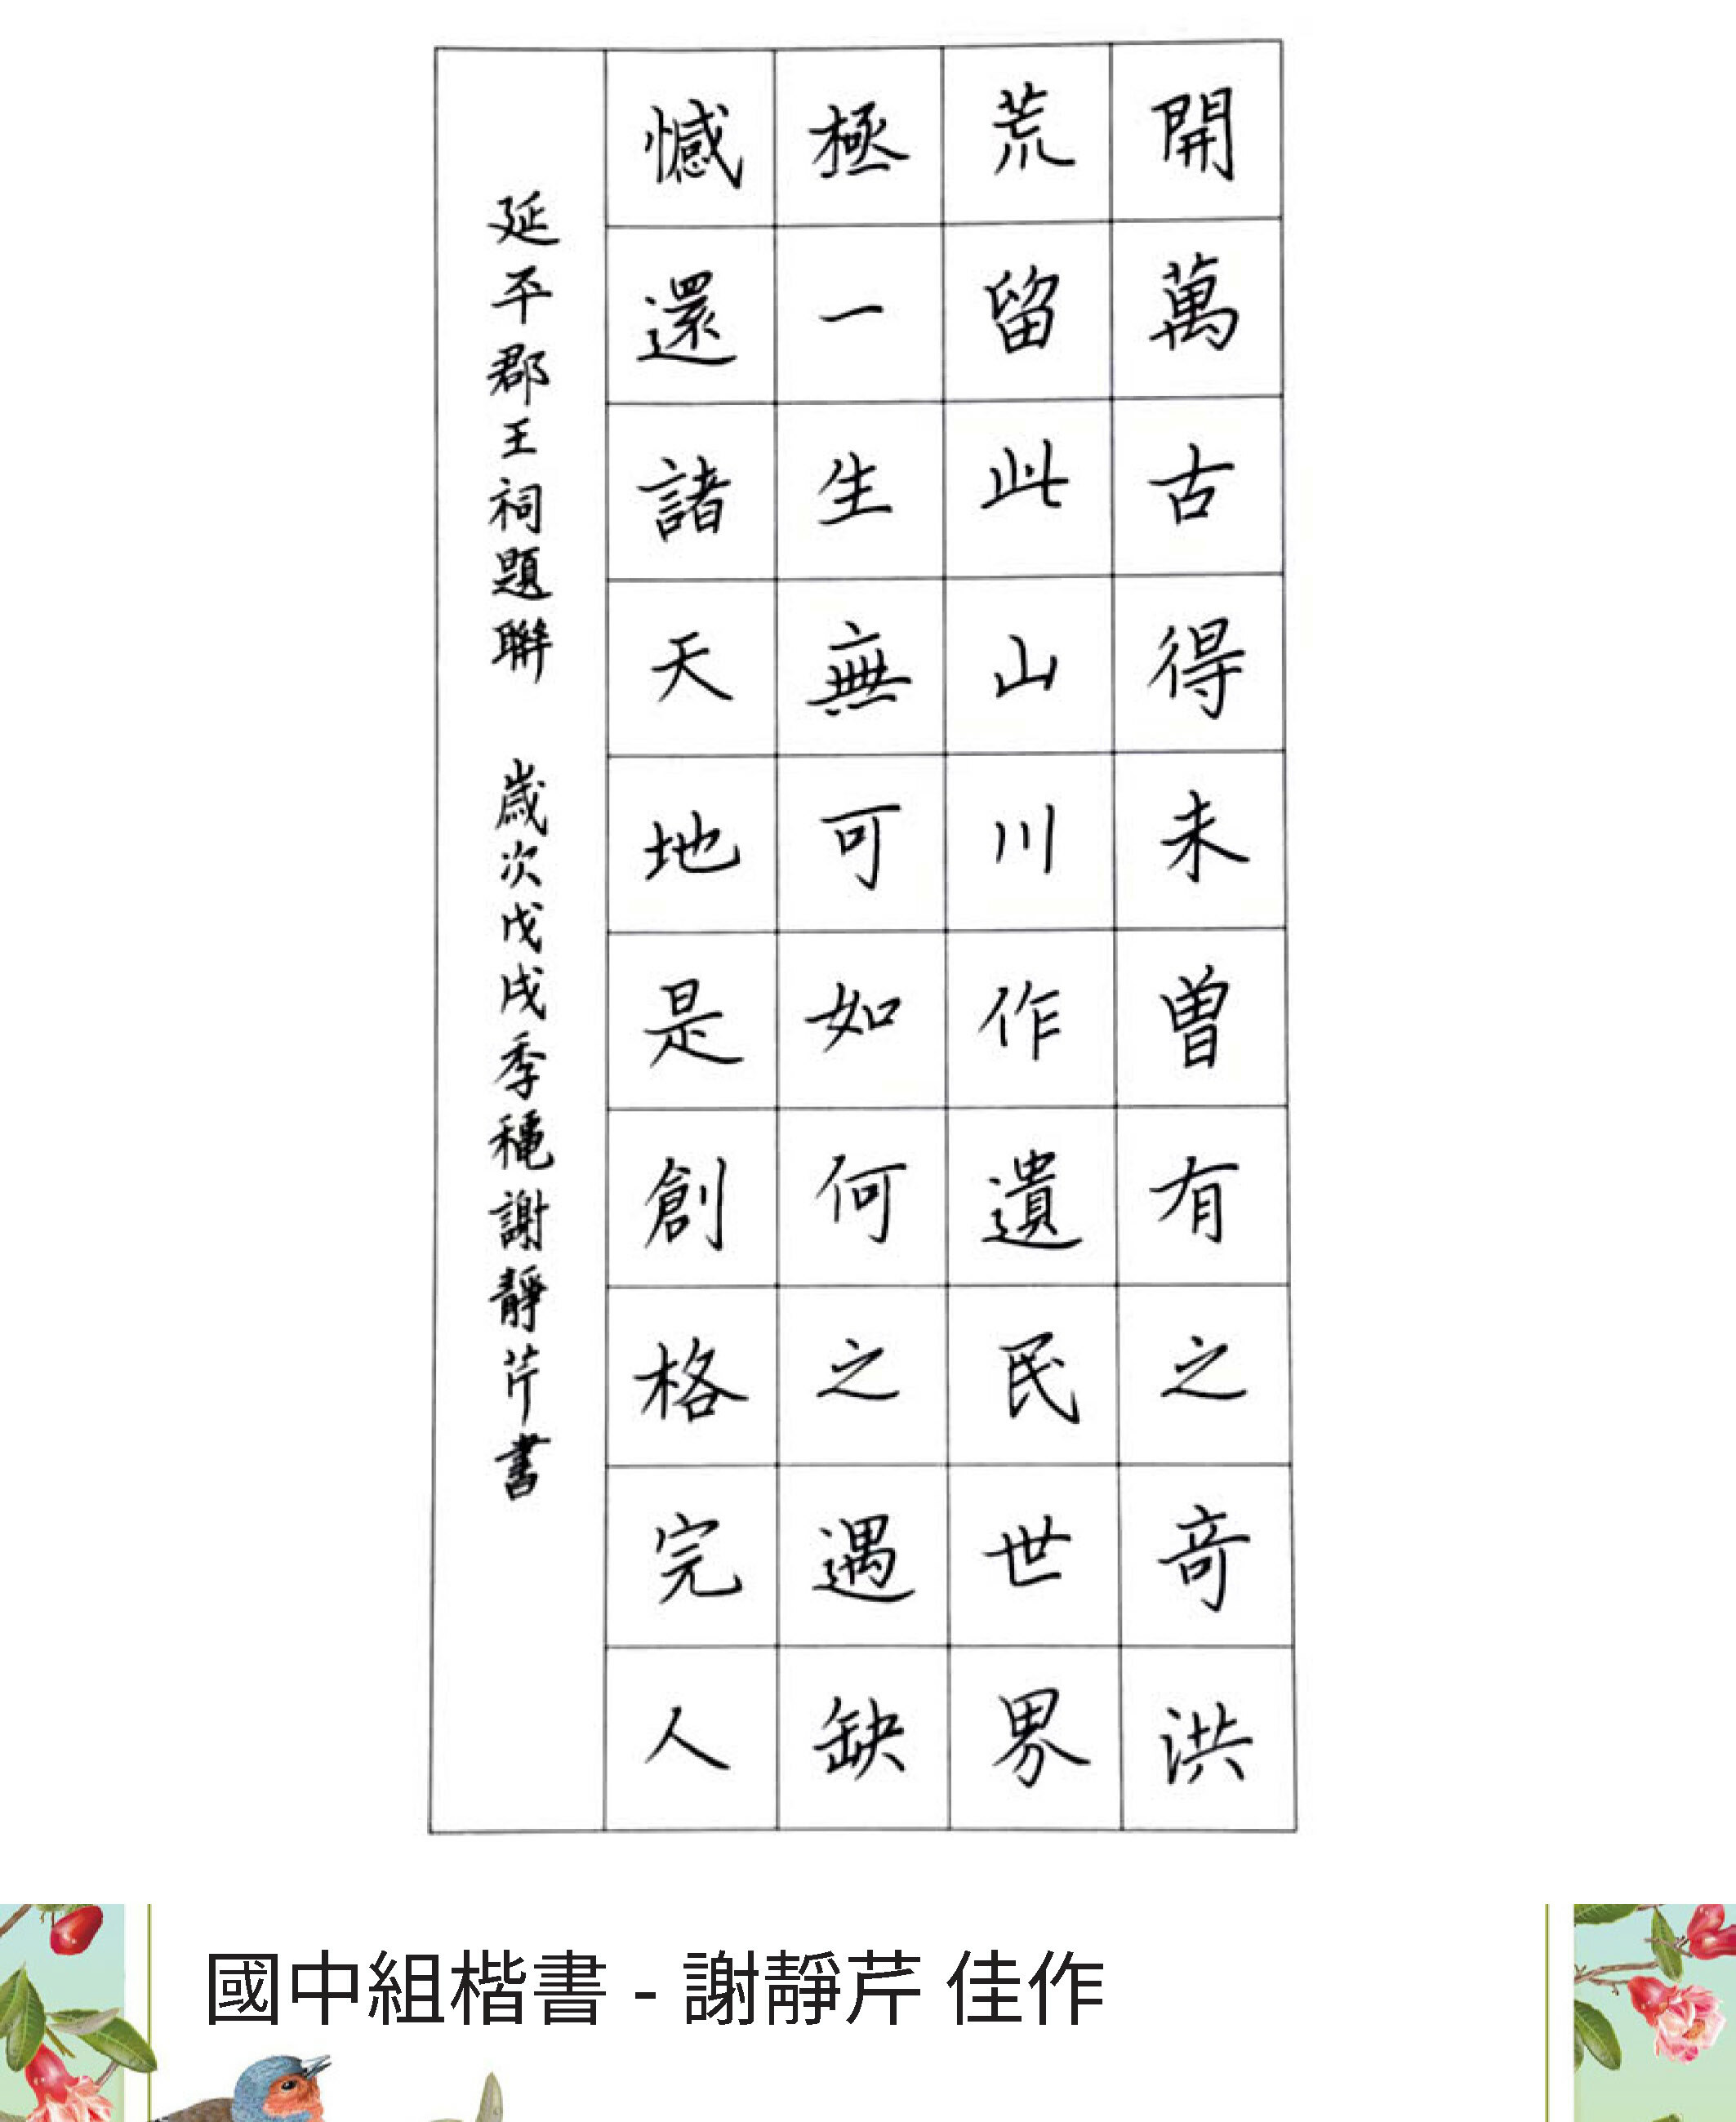 開萬古得未曾有之奇洪
荒留此山川作遺民世界
極一生無可如何之遇缺
憾還諸天地是創格完人
延平郡王祠題聯 歲次戊戌季穐謝靜芹書
國中組楷書 - 謝靜芹 佳作